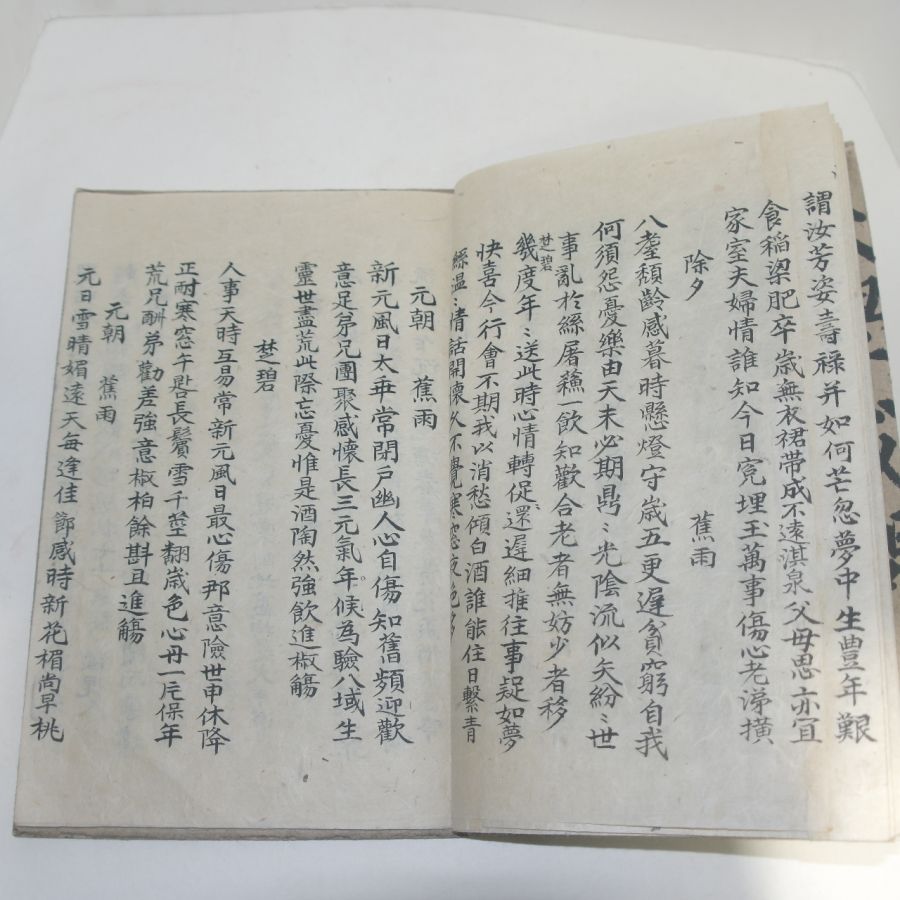 謂汝芳姿壽祿并如何芒忽夢中生豊年艱
食稻梁肥卒歳無衣裙帶成不遠淇泉父母思亦宜
家室夫婦情誰知今日寃埋玉萬事傷心老涕橫
除夕　蕉雨
八耋頹齡感暮時懸燈守歳五更遲貧窮自我
何須怨憂樂由天未必期鼎〻光陰流似矢紛〻世
事亂於絲屠蘓一飮知歡合老者無妨少者移
楚碧
幾度年〻送此時心情轉促還遲細推往事疑如夢
快喜今行會不期我以消愁傾白酒誰能住日繫青
絲溫〻情話開懷久不覺寒窓夜色
元朝　蕉雨
新元風日太平常閉戶幽人心自傷知舊頻迎歡
意足弟兄團聚感懷長三元氣年候為驗八域生
靈世盡荒此際忘憂惟是酒陶然強飮進椒觴
楚碧
人事天時互易常新元風日最心傷那意險世申休降
正耐寒窓午晷長鬢雪千莖翻歳色心丹一片保年
荒兄酬弟勸差強意椒柏餘斟且進觴
元朝　蕉雨
元日雪晴媚遠天每逢佳節感時新花楣尚早桃